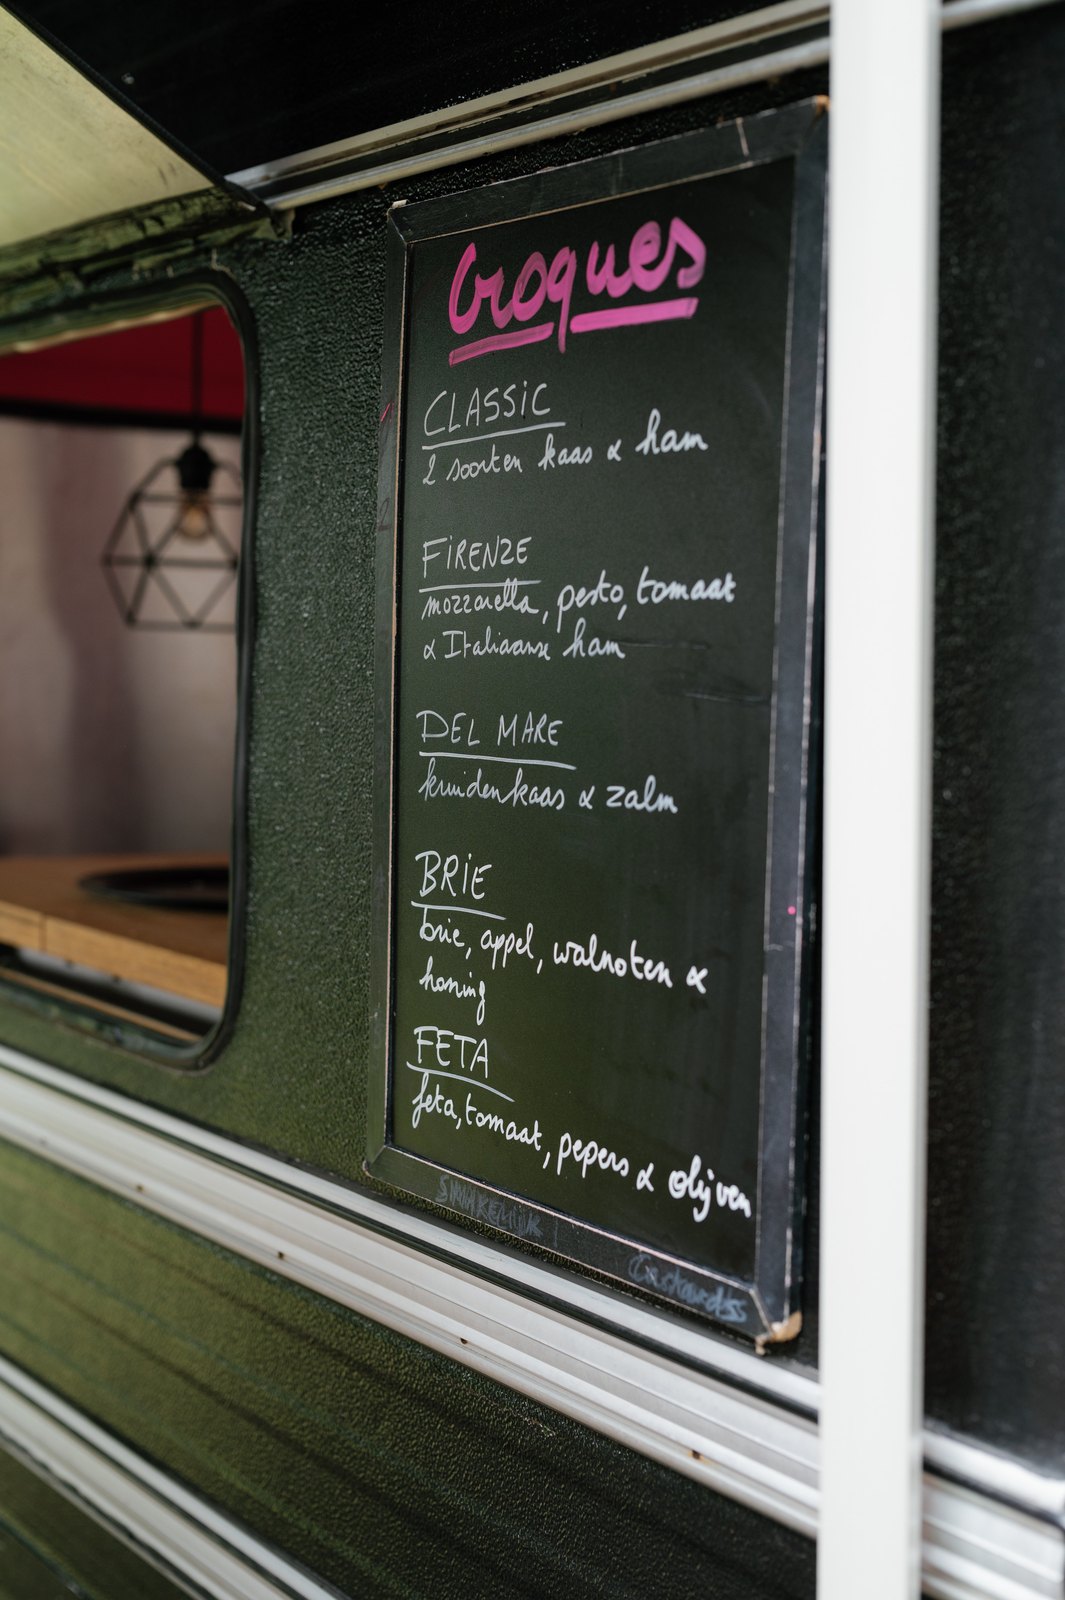 Croques
CLASSiC
2 soorten kaas & ham
FiRENZE
mozzarella, pesto, tomaat
& Italiaanse ham
DEL MARE
kruidenkaas & zalm
BRiE
brie, appel, walnoten &
honing
FETA
feta, tomaat, pepers & olijven